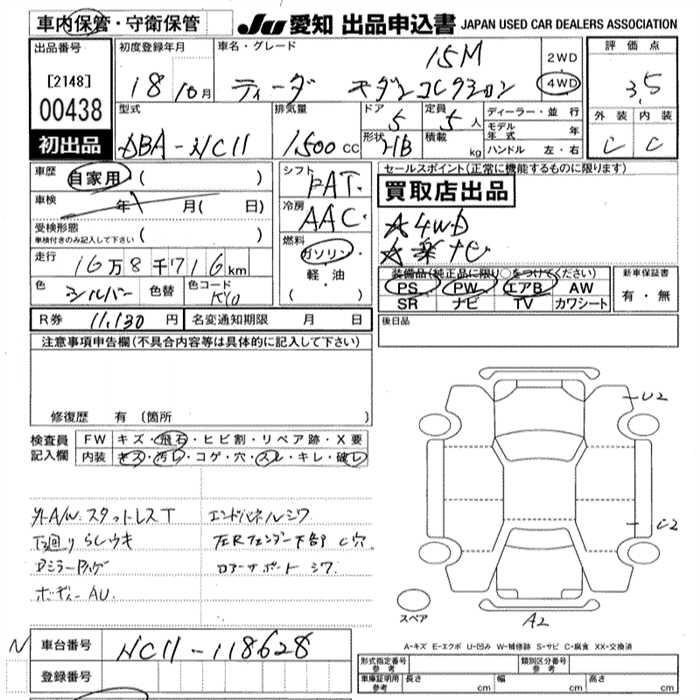 車内保管・守衛保管
JU 愛知 出品申込書 JAPAN USED CAR DEALERS ASSOCIATION
出品番号 初度登録年月 車名・グレード 評価点
[2148] 18 10月 ティーダ 15M モダンコレクション 2WD 4WD 3.5
00438
型式 排気量 ドア 定員 ディーラー・並行 外装 内装
初出品 DBA-NC11 1,500cc 5 5人 モデル年式 年 C C
形状 HB 積載 kg ハンドル 左・右
車歴 自家用 ( ) シフト FAT セールスポイント(正常に機能するものに限ります)
車検 年 月( 日) 冷房 AAC 買取店出品
受検形態 車検付きのみ記入して下さい ( ) ☆4WD
走行 16万8千716km 燃料 ガソリン・軽油 ナビ
色 シルバー 色替 色コード KY0
装備品(純正品に限り○をつけてください) 新車保証書
PS PW エアB AW 有・無
SR ナビ TV カワシート
R券 11,130円 名変通知期限 月 日 後日品
注意事項申告欄(不具合内容等は具体的に記入して下さい)
修復歴 有 (箇所 )
検査員記入欄 FW キズ・飛石・ヒビ割・リペア跡・X要
内装 キズ・汚レ・コゲ・穴・スレ・キレ・破レ
外A/W. スタットレスT エンドパネルシワ
下廻りらしウキ 左Rフェンダー下部C穴
Dミラー ロアーサポートシワ
ボディーAU.
U2
C2
A2
スペア
A-キズ E-エクボ U-凹み W-補修跡 S-サビ C-腐食 XX-交換済
N 車台番号 NC11-118628
登録番号
形式指定番号 参考 類別区分番号 参考
車庫証明用 参考 長さ cm 幅 cm 高さ cm